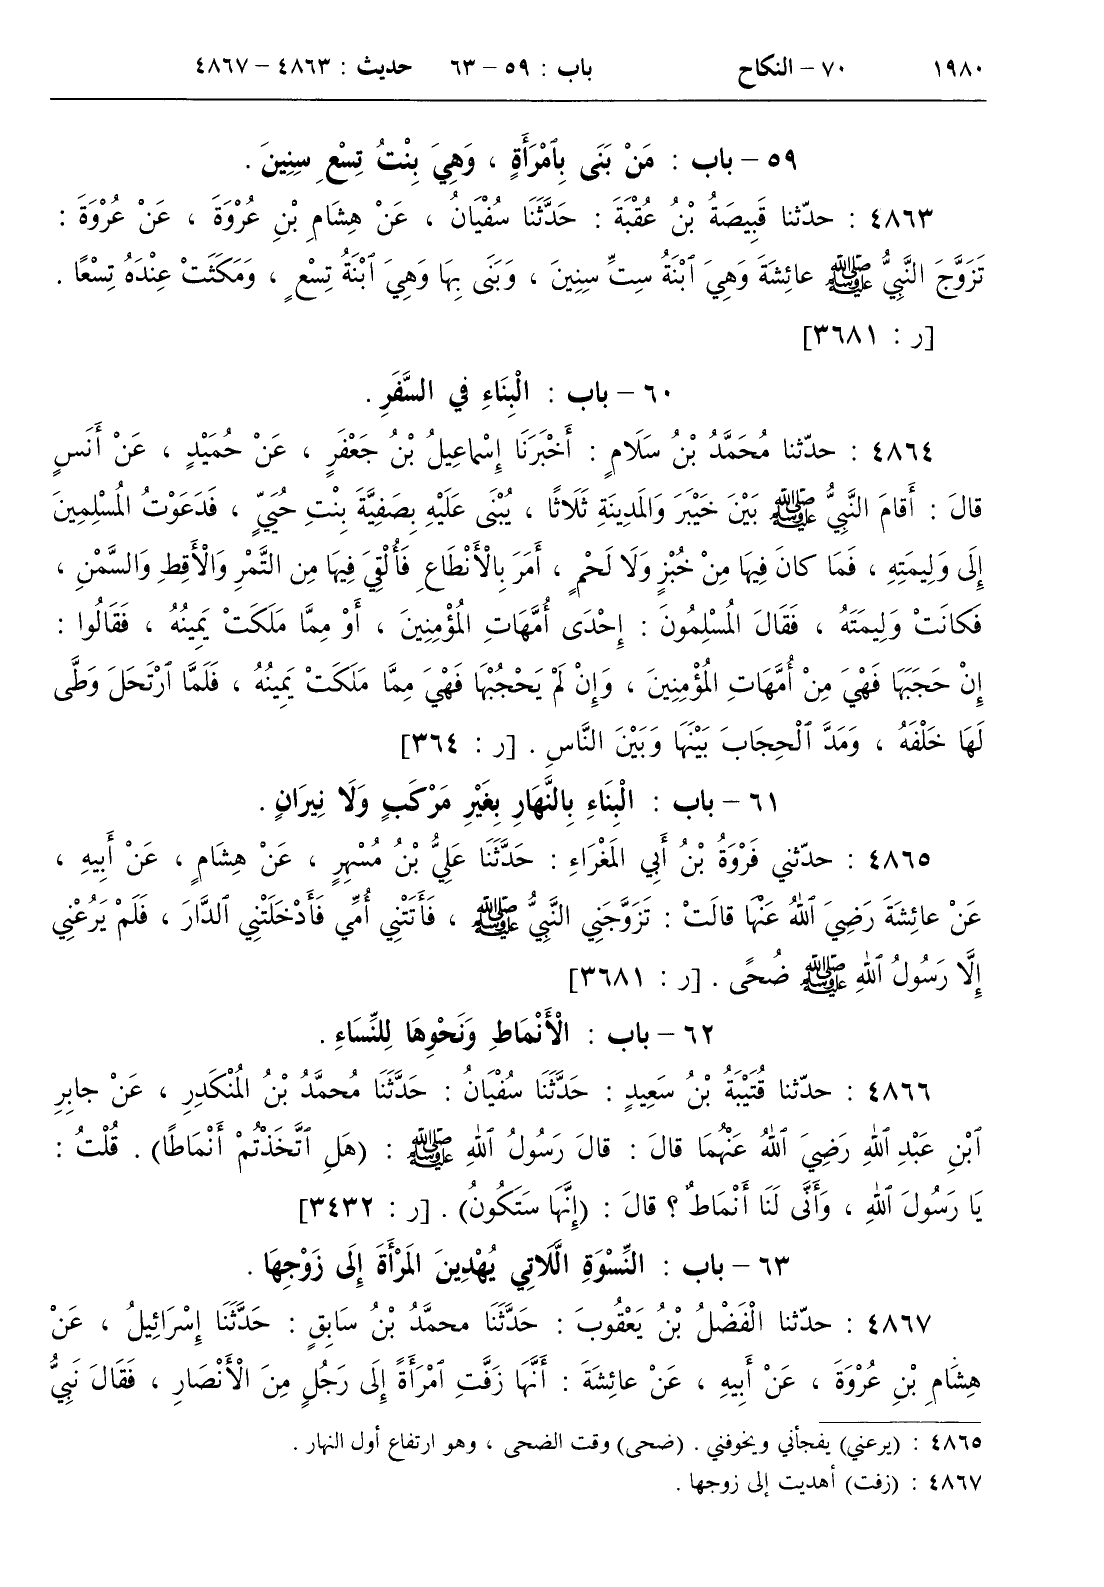 ١٩٨٠ ٧٠ – النكاح باب : ٥٩ – ٦٣ حديث : ٤٨٦٣ – ٤٨٦٧
٥٩ – باب : مَنْ بَنَى بِٱمْرَأَةٍ ، وَهِيَ بِنْتُ تِسْعِ سِنِينَ .
٤٨٦٣ : حدّثنا قَبِيصَةُ بْنُ عُقْبَةَ : حَدَّثَنَا سُفْيَانُ ، عَنْ هِشَامِ بْنِ عُرْوَةَ ، عَنْ عُرْوَةَ :
تَزَوَّجَ النَّبِيُّ ﷺ عائِشَةَ وَهِيَ ٱبْنَةُ سِتِّ سِنِينَ ، وَبَنَى بِهَا وَهِيَ ٱبْنَةُ تِسْعٍ ، وَمَكَثَتْ عِنْدَهُ تِسْعًا .
[ر : ٣٦٨١]
٦٠ – باب : الْبِنَاءِ في السَّفَرِ .
٤٨٦٤ : حدّثنا مُحَمَّدُ بْنُ سَلَامٍ : أَخْبَرَنَا إِسْماعِيلُ بْنُ جَعْفَرٍ ، عَنْ حُمَيْدٍ ، عَنْ أَنَسٍ
قالَ : أَقامَ النَّبِيُّ ﷺ بَيْنَ خَيْبَرَ وَالمَدِينَةِ ثَلَاثًا ، يُبْنَى عَلَيْهِ بِصَفِيَّةَ بِنْتِ حُيَيٍّ ، فَدَعَوْتُ الْمُسْلِمِينَ
إِلَى وَلِيمَتِهِ ، فَمَا كانَ فِيهَا مِنْ خُبْزٍ وَلَا لَحْمٍ ، أَمَرَ بِالْأَنْطَاعِ فَأُلْقِيَ فِيهَا مِنَ التَّمْرِ وَالْأَقِطِ وَالسَّمْنِ ،
فَكانَتْ وَلِيمَتَهُ ، فَقَالَ الْمُسْلِمُونَ : إِحْدَى أُمَّهَاتِ الْمُؤْمِنِينَ ، أَوْ مِمَّا مَلَكَتْ يَمِينُهُ ، فَقَالُوا :
إِنْ حَجَبَهَا فَهْيَ مِنْ أُمَّهَاتِ الْمُؤْمِنِينَ ، وَإِنْ لَمْ يَحْجُبْهَا فَهْيَ مِمَّا مَلَكَتْ يَمِينُهُ ، فَلَمَّا ٱرْتَحَلَ وَطَّى
لَهَا خَلْفَهُ ، وَمَدَّ ٱلْحِجَابَ بَيْنَهَا وَبَيْنَ النَّاسِ . [ر : ٣٦٤]
٦١ – باب : الْبِنَاءِ بِالنَّهَارِ بِغَيْرِ مَرْكَبٍ وَلَا نِيرَانٍ .
٤٨٦٥ : حدّثني فَرْوَةُ بْنُ أَبِي المَغْرَاءِ : حَدَّثَنَا عَلِيُّ بْنُ مُسْهِرٍ ، عَنْ هِشَامٍ ، عَنْ أَبِيهِ ،
عَنْ عائِشَةَ رَضِيَ ٱللهُ عَنْهَا قالَتْ : تَزَوَّجَنِي النَّبِيُّ ﷺ ، فَأَتَتْنِي أُمِّي فَأَدْخَلَتْنِي ٱلدَّارَ ، فَلَمْ يَرُعْنِي
إِلَّا رَسُولُ ٱللهِ ﷺ ضُحًى . [ر : ٣٦٨١]
٦٢ – باب : الْأَنْمَاطِ وَنَحْوِهَا لِلنِّسَاءِ .
٤٨٦٦ : حدّثنا قُتَيْبَةُ بْنُ سَعِيدٍ : حَدَّثَنَا سُفْيَانُ : حَدَّثَنَا مُحمَّدُ بْنُ الْمُنْكَدِرِ ، عَنْ جابِرِ
ٱبْنِ عَبْدِ ٱللهِ رَضِيَ ٱللهُ عَنْهُمَا قالَ : قالَ رَسُولُ ٱللهِ ﷺ : (هَلِ ٱتَّخَذْتُمْ أَنْمَاطًا) . قُلْتُ :
يَا رَسُولَ ٱللهِ ، وَأَنَّى لَنَا أَنْمَاطٌ ؟ قالَ : (إِنَّهَا سَتَكُونُ) . [ر : ٣٤٣٢]
٦٣ – باب : النِّسْوَةِ الَّلَاتِي يُهْدِينَ المَرْأَةَ إِلَى زَوْجِهَا .
٤٨٦٧ : حدّثنا الْفَضْلُ بْنُ يَعْقُوبَ : حَدَّثَنَا محمَّدُ بْنُ سَابِقٍ : حَدَّثَنَا إِسْرَائِيلُ ، عَنْ
هِشَامِ بْنِ عُرْوَةَ ، عَنْ أَبِيهِ ، عَنْ عائِشَةَ : أَنَّهَا زَفَّتِ ٱمْرَأَةً إِلَى رَجُلٍ مِنَ الْأَنْصَارِ ، فَقَالَ نَبِيُّ
٤٨٦٥ : (يرعني) يفجأني ويخوفني . (ضحى) وقت الضحى ، وهو ارتفاع أول النهار .
٤٨٦٧ : (زفت) أهديت إلى زوجها .